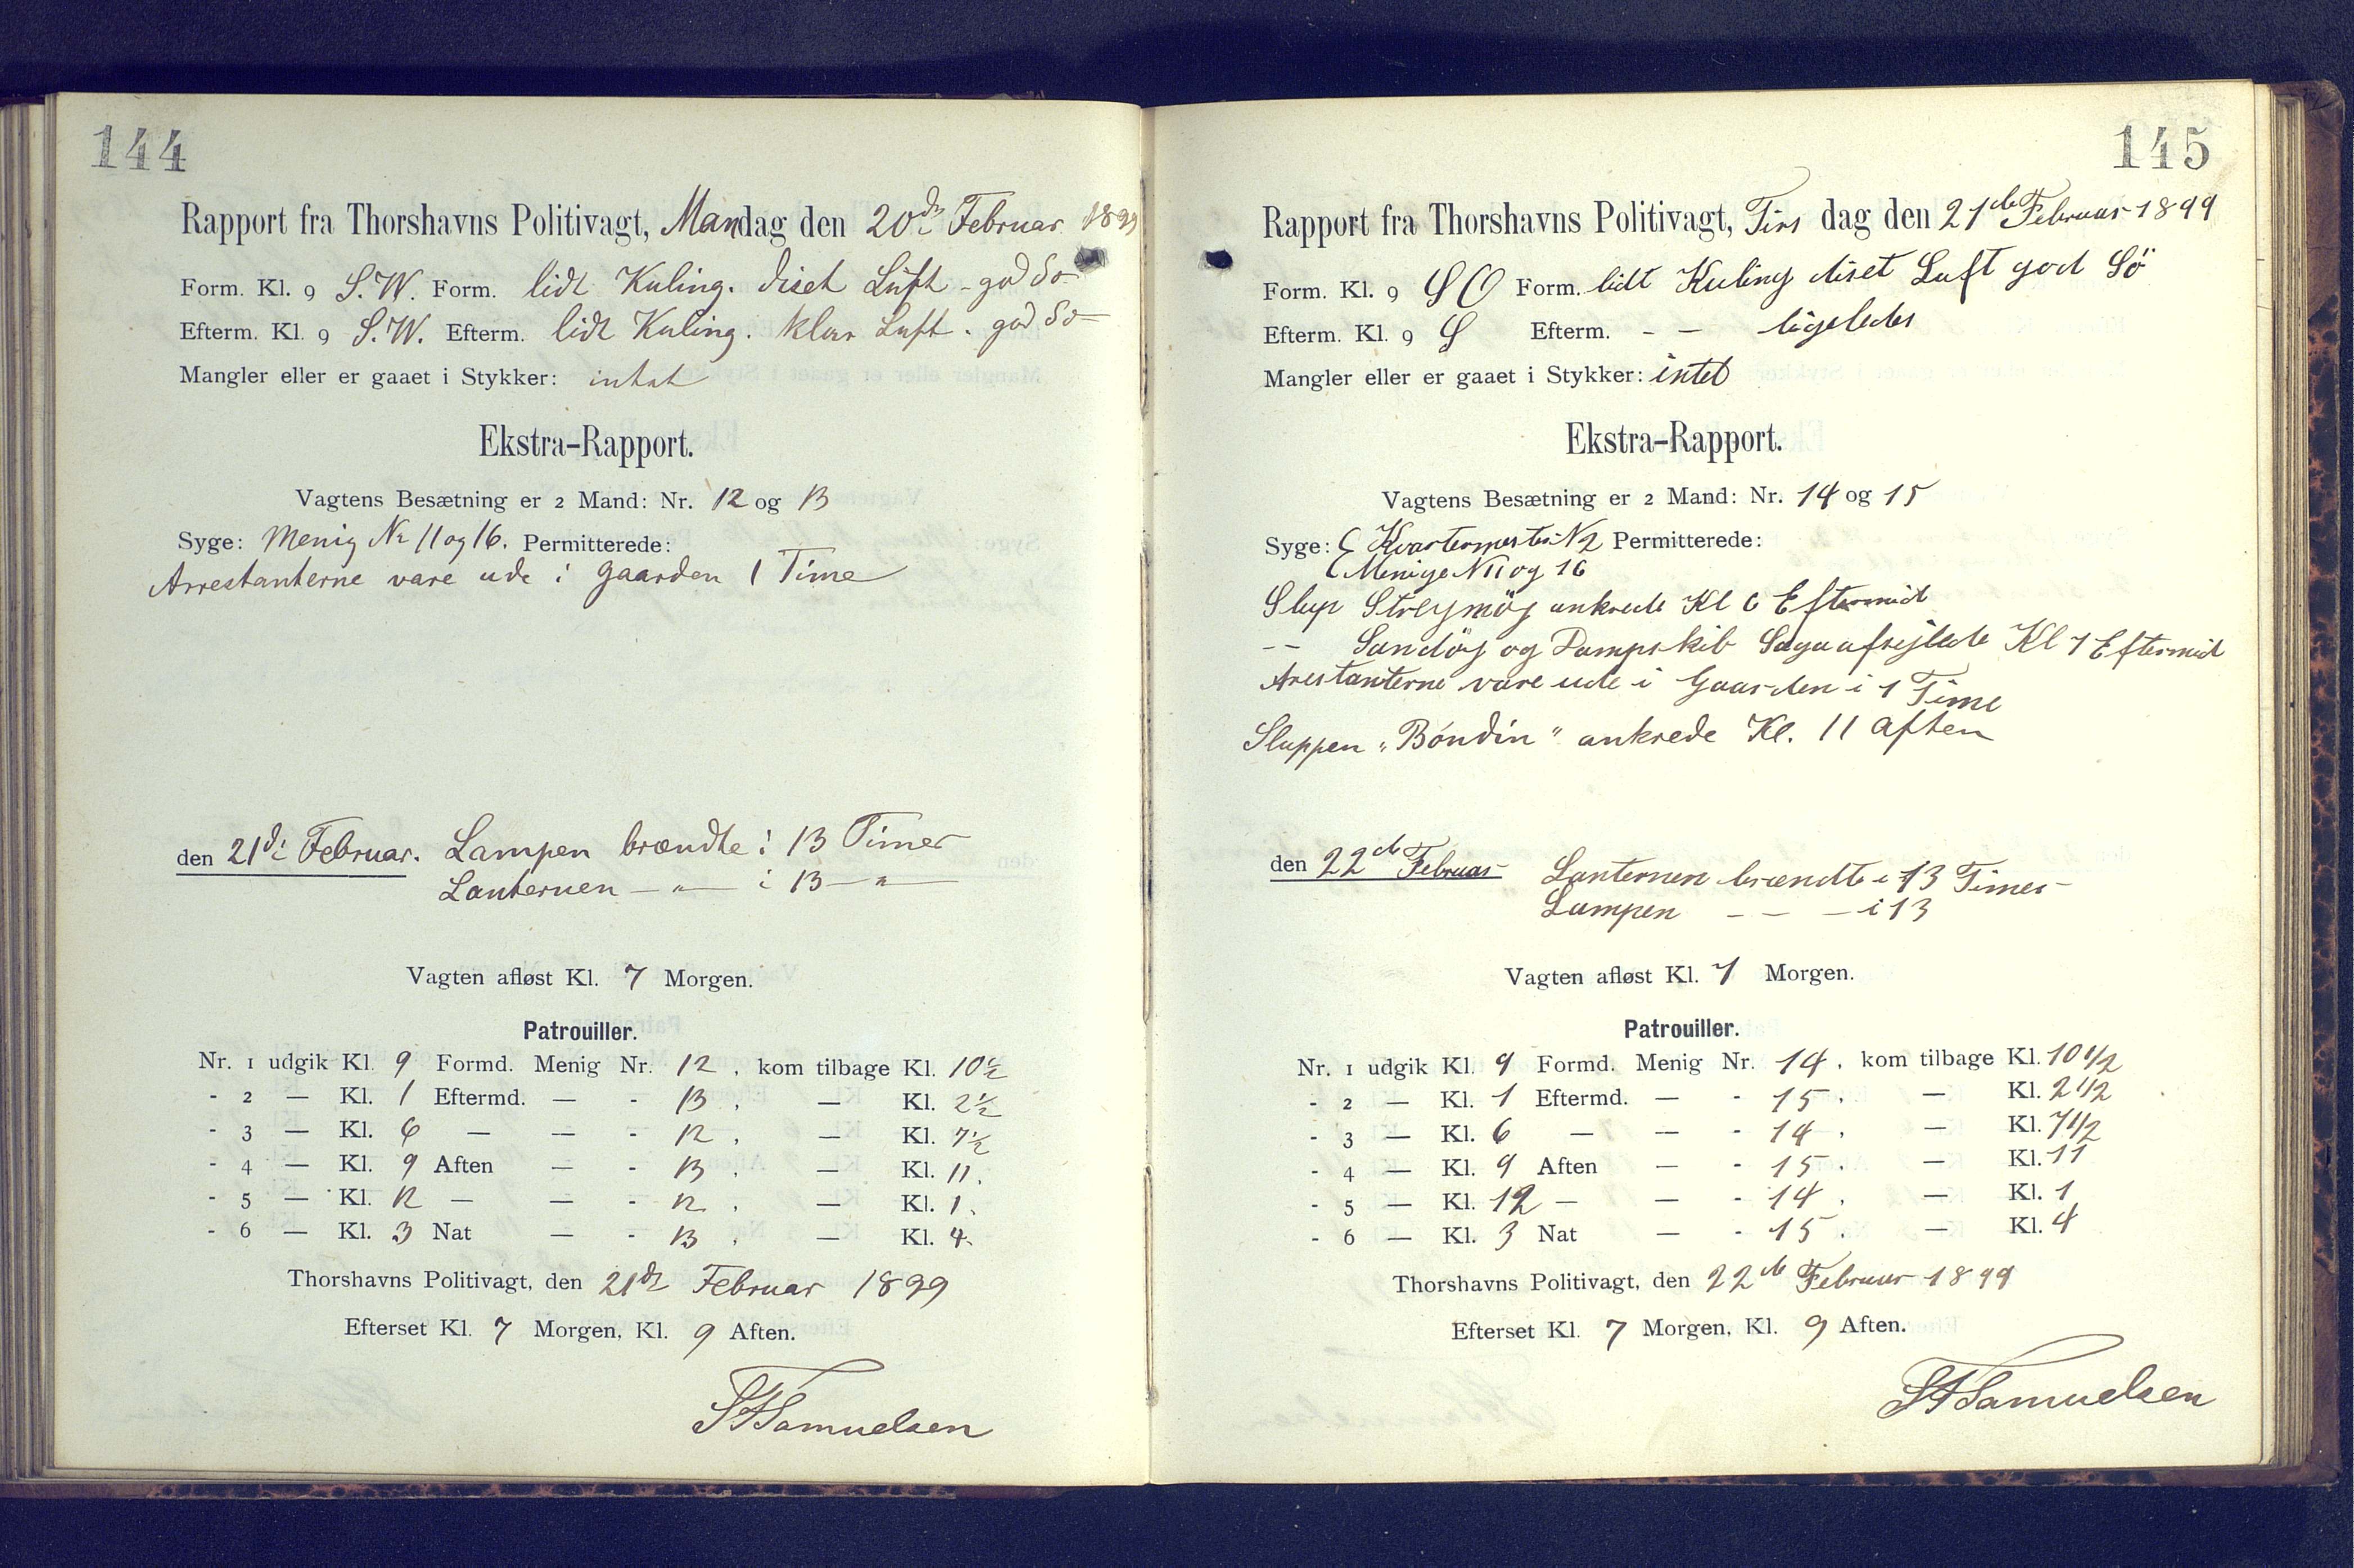 144
Rapport fra Thorshavns Politivagt, Mandag den 20de Februar 1899
Form. Kl. 9 S.W. Form. lidt Kuling. diset Luft - god Sø
Efterm. Kl. 9 S.W. Efterm. lidt Kuling. klar Luft. god Sø
Mangler eller er gaaet i Stykker: intet
Ekstra-Rapport.
Vagtens Besætning er 2 Mand: Nr. 12 og 13
Syge: Menig Nr 11 og 16. Permitterede:
Arrestanterne vare ude i gaarden 1 Time
den 21de Februar. Lampen brændte i 13 Timer
Lanternen — " — i 13 — " —
Vagten afløst Kl. 7 Morgen.
Patrouiller.
Nr. 1 udgik Kl. 9 Formd. Menig Nr. 12, kom tilbage Kl. 10 1/2
- 2 — Kl. 1 Eftermd. — - 13, — Kl. 2 1/2
- 3 — Kl. 6 — — - 12, — Kl. 7 1/2
- 4 — Kl. 9 Aften — - 13, — Kl. 11.
- 5 — Kl. 12 — — - 12, — Kl. 1.
- 6 — Kl. 3 Nat — - 13, — Kl. 4.
Thorshavns Politivagt, den 21de Februar 1899
Efterset Kl. 7 Morgen, Kl. 9 Aften.
SFSamuelsen
145
Rapport fra Thorshavns Politivagt, Tirsdag den 21de Februar 1899
Form. Kl. 9 SO Form. lidt Kuling diset Luft god Sö
Efterm. Kl. 9 S Efterm. - — ligeledes
Mangler eller er gaaet i Stykker: intet
Ekstra-Rapport.
Vagtens Besætning er 2 Mand: Nr. 14 og 15
Syge: Kvartermester N 2 Permitterede:
Menige N 11 og 16
Slup Streymöy ankrede Kl 6 Eftermid
-- Sandöy og Dampskib Saga afsejlede Kl 7 Eftermid
Arestanterne vare ude i Gaarden i 1 Time
Sluppen „Bóndin" ankrede Kl. 11 aften
den 22de Februar Lanternen brændte i 13 Timer
Lampen — — — i 13
Vagten afløst Kl. 7 Morgen.
Patrouiller.
Nr. 1 udgik Kl. 9 Formd. Menig Nr. 14, kom tilbage Kl. 10 1/2
- 2 — Kl. 1 Eftermd. — - 15, — Kl. 2 1/2
- 3 — Kl. 6 — — - 14, — Kl. 7 1/2
- 4 — Kl. 9 Aften — - 15, — Kl. 11
- 5 — Kl. 12 — — - 14, — Kl. 1
- 6 — Kl. 3 Nat — - 15, — Kl. 4
Thorshavns Politivagt, den 22de Februar 1899
Efterset Kl. 7 Morgen, Kl. 9 Aften.
SFSamuelsen